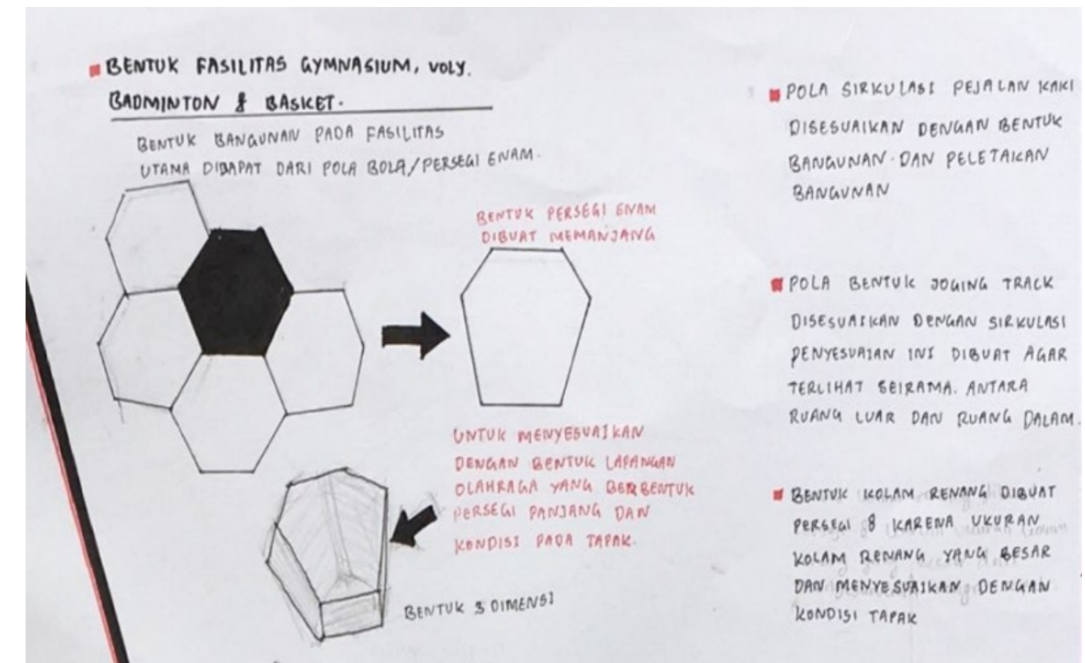 BENTUK FASILITAS GYMNASIUM, VOLY.
BADMINTON & BASKET.
BENTUK BANGUNAN PADA FASILITAS
UTAMA DIDAPAT DARI POLA BOLA/PERSEGI ENAM.
BENTUK PERSEGI ENAM
DIBUAT MEMANJANG
UNTUK MENYESUAIKAN
DENGAN BENTUK LAPANGAN
OLAHRAGA YANG BERBENTUK
PERSEGI PANJANG DAN
KONDISI PADA TAPAK.
BENTUK 3 DIMENSI
POLA SIRKULASI PEJALAN KAKI
DISESUAIKAN DENGAN BENTUK
BANGUNAN DAN PELETAKAN
BANGUNAN
POLA BENTUK JOGING TRACK
DISESUAIKAN DENGAN SIRKULASI
PENYESUAIAN INI DIBUAT AGAR
TERLIHAT SEIRAMA. ANTARA
RUANG LUAR DAN RUANG DALAM.
BENTUK KOLAM RENANG DIBUAT
PERSEGI 8 KARENA UKURAN
KOLAM RENANG YANG BESAR
DAN MENYESUAIKAN DENGAN
KONDISI TAPAK